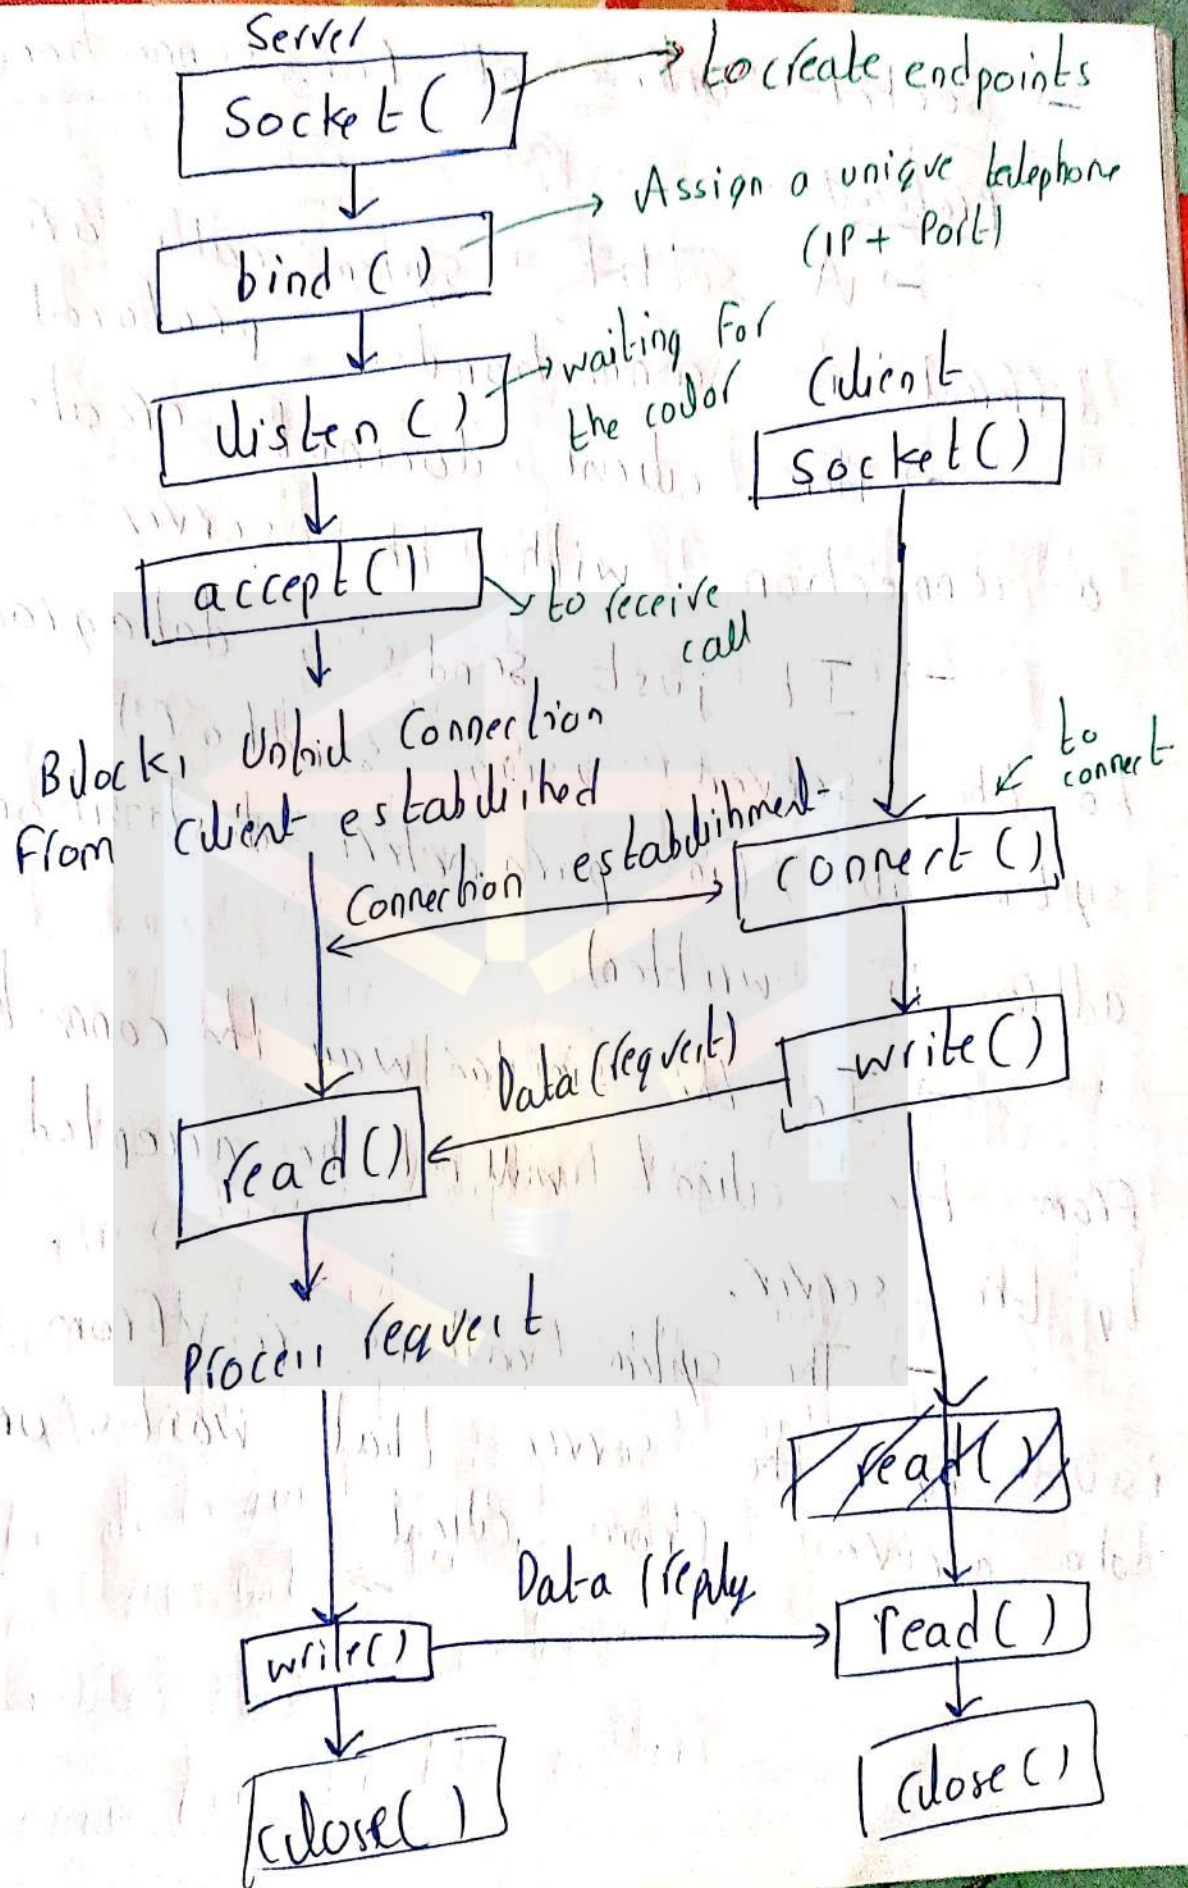 Server
Socket()
to create endpoints
bind()
Assign a unique telephone
(IP + Port)
listen()
waiting for
the color
Client
Socket()
accept()
to receive
call
Block, Until Connection
From Client established
to
connect
Connection establishment
connect()
write()
Data (request)
read()
Process request
read()
Data (reply
write()
read()
close()
close()